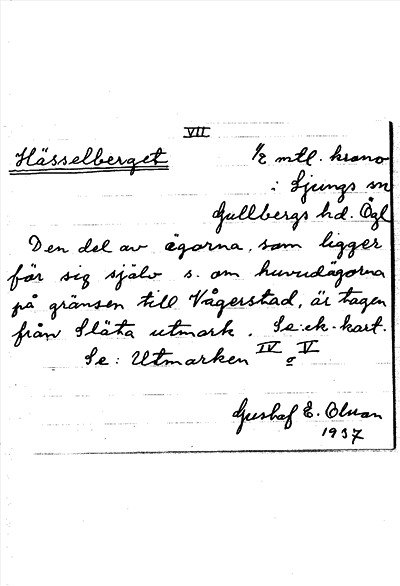 VII
Hässelberget 1/2 mtl. krono
i Ljungs sn
Gullbergs hd. Ögl
Den del av ägorna, som ligger
för sig själv s. om huvudägorna
på gränsen till Vågerstad, är tagen
från Släta utmark. Se: ek. kart.
Se: Utmarken IV o V
Gustaf E. Olsson
1937